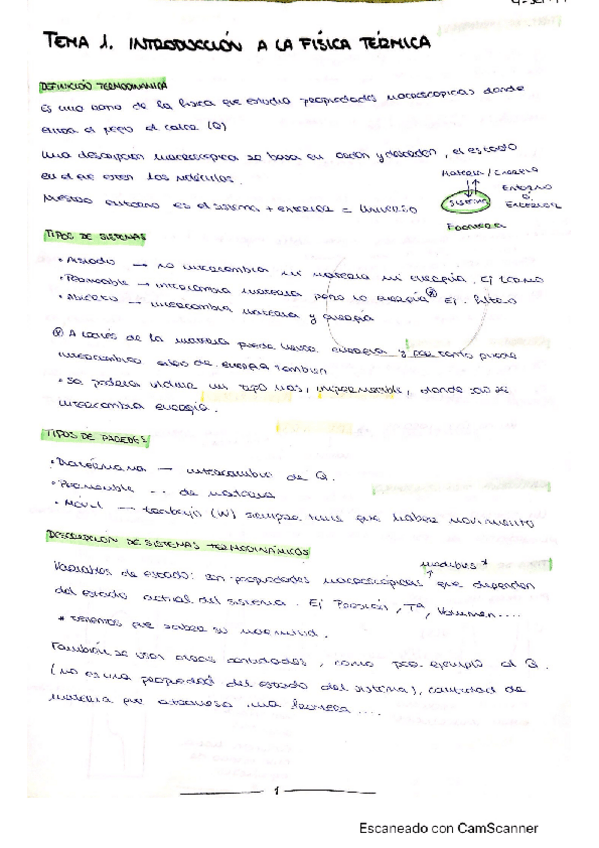 TEMA 1. INTRODUCCIÓN A LA FÍSICA TÉRMICA
DEFINICIÓN TERMODINÁMICA
Es una rama de la física que estudia propiedades macroscópicas donde
entra el juego el calor (Q)
Una descripción macroscópica se basa en orden y desorden, el estado
en el que están las moléculas.
Materia / Energía
Nuestro entorno es el sistema + exterior = Universo
Sistema
Entorno
o
Exterior
Frontera
TIPOS DE SISTEMAS
• Aislado → no intercambia ni materia ni energía. Ej
• Permeable → intercambia materia pero no energía ⊛ Ej. filtro
• Abierto → intercambia materia y energía
⊛ A través de la materia puede haber energía y por tanto puede
intercambio de energía también
• Se podría incluir un tipo más, impermeable, donde solo se
intercambia energía.
TIPOS DE PAREDES
• Diatérmana → intercambio de Q.
• Permeable -- de materia
• Móvil → trabajo (W) siempre tiene que haber movimiento
DESCRIPCIÓN DE SISTEMAS TERMODINÁMICOS
medibles *
Variables de estado: son propiedades macroscópicas que dependen
del estado actual del sistema. Ej Presión, Tª, Volumen....
* tenemos que saber su
También se usan otras cantidades, como por ejemplo el Q.
(no es una propiedad del estado del sistema), cantidad de
materia que atraviesa una frontera ....
1
Escaneado con CamScanner